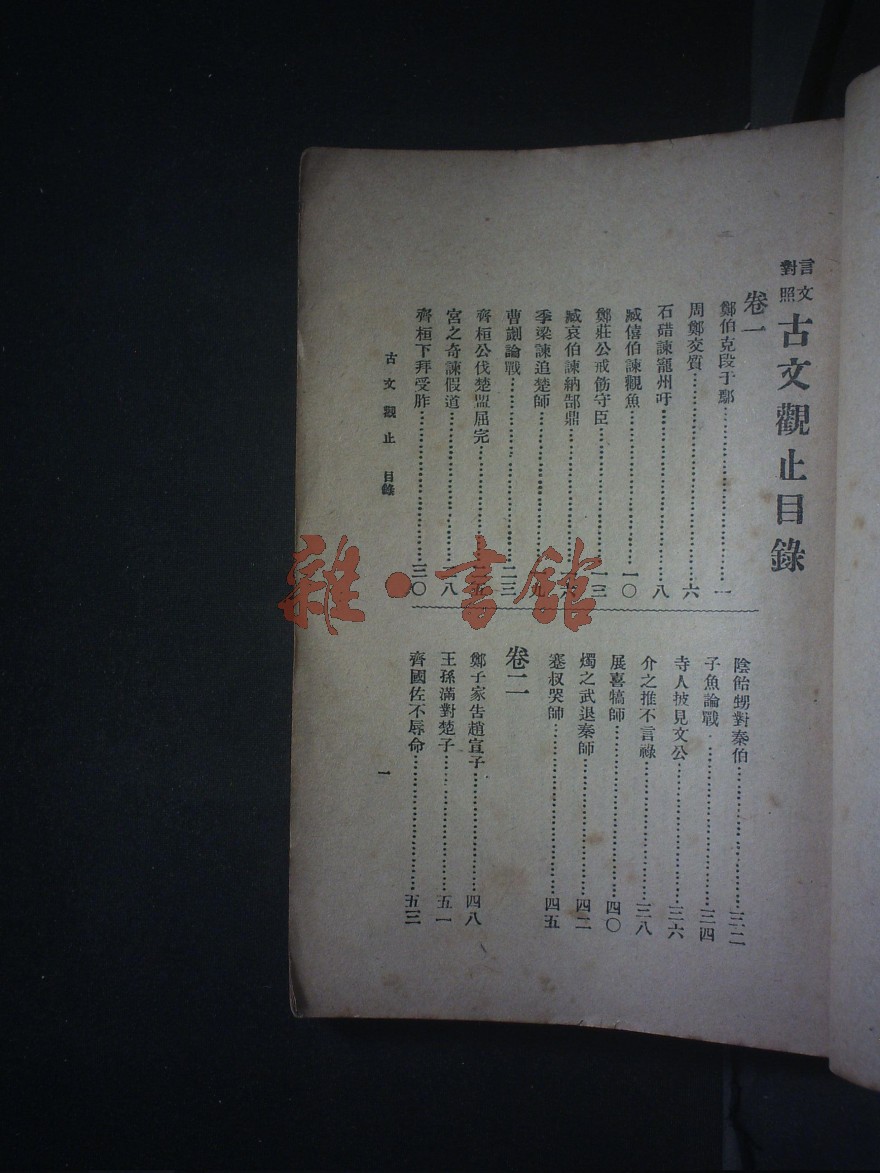 言文對照
古文觀止目錄
卷一
鄭伯克段于鄢⋯⋯一
周鄭交質⋯⋯六
石碏諫寵州吁⋯⋯八
臧僖伯諫觀魚⋯⋯一〇
鄭莊公戒飭守臣⋯⋯一三
臧哀伯諫納郜鼎⋯⋯一六
季梁諫追楚師⋯⋯一九
曹劌論戰⋯⋯二三
齊桓公伐楚盟屈完⋯⋯二五
宮之奇諫假道⋯⋯二八
齊桓下拜受胙⋯⋯三〇
陰飴甥對秦伯⋯⋯三二
子魚論戰⋯⋯三四
寺人披見文公⋯⋯三六
介之推不言祿⋯⋯三八
展喜犒師⋯⋯四〇
燭之武退秦師⋯⋯四二
蹇叔哭師⋯⋯四五
卷二
鄭子家告趙宣子⋯⋯四八
王孫滿對楚子⋯⋯五一
齊國佐不辱命⋯⋯五三
古文觀止 目錄
一
雜·書館